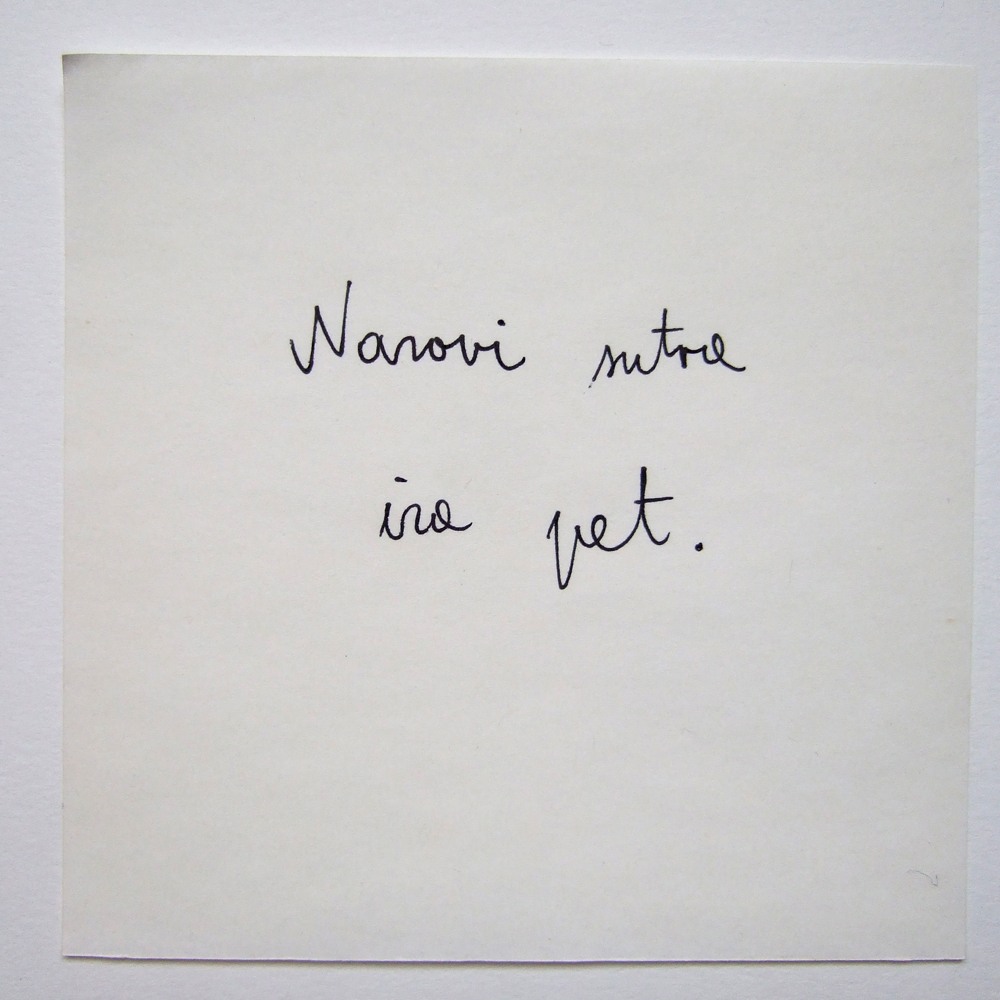 Nazovi sutra
iza pet.